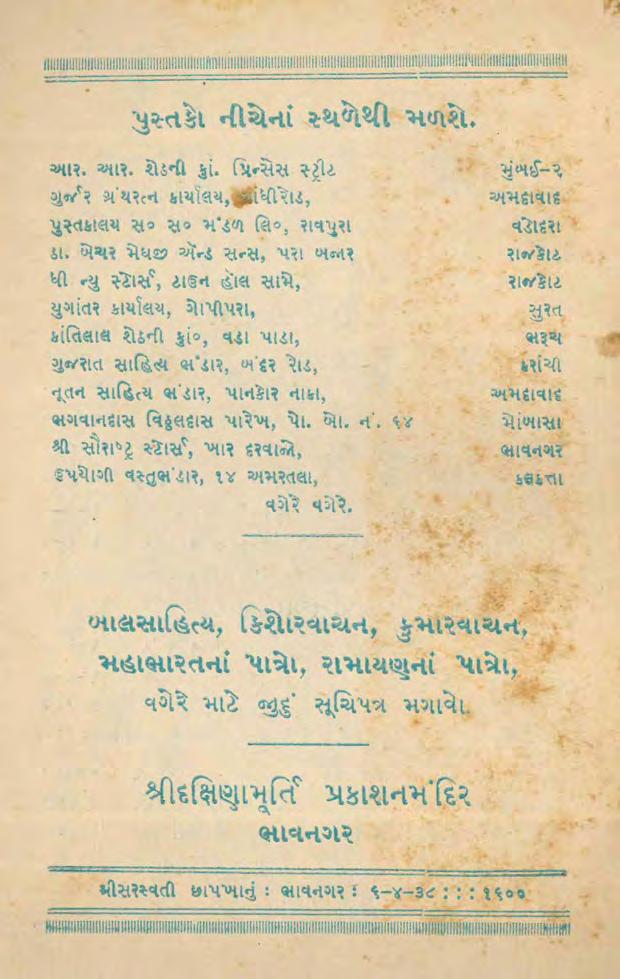 પુસ્તકો નીચેનાં સ્થળેથી મળશે.
આર. આર. શેઠની કું. પ્રિન્સેસ સ્ટ્રીટ મુંબઈ-૨
ગુર્જર ગ્રંથરત્ન કાર્યાલય, ગાંધીરોડ, અમદાવાદ
પુસ્તકાલય સ૦ સ૦ મંડળ લિ૦, રાવપુરા વડોદરા
ડા. બેચર મેઘજી ઍન્ડ સન્સ, પરા બજાર રાજકોટ
ધી ન્યુ સ્ટોર્સ, ટાઉન હૉલ સામે, રાજકોટ
યુગાંતર કાર્યાલય, ગોપીપરા, સુરત
કાંતિલાલ શેઠની કું૦, વડા પાડા, ભરૂચ
ગુજરાત સાહિત્ય ભંડાર, બંદર રોડ, કરાંચી
નૂતન સાહિત્ય ભંડાર, પાનકોર નાકા, અમદાવાદ
ભગવાનદાસ વિઠ્ઠલદાસ પારેખ, પો. બો. નં. ૬૪ મોંબાસા
શ્રી સૌરાષ્ટ્ર સ્ટોર્સ, ખાર દરવાજો, ભાવનગર
ઉપયોગી વસ્તુભંડાર, ૧૪ અમરતલા, કલકત્તા
વગેરે વગેરે.
બાલસાહિત્ય, કિશોરવાચન, કુમારવાચન,
મહાભારતનાં પાત્રો, રામાયણનાં પાત્રો,
વગેરે માટે જુદું સૂચિપત્ર મગાવો.
શ્રીદક્ષિણામૂર્તિ પ્રકાશનમંદિર
ભાવનગર
શ્રીસરસ્વતી છાપખાનું : ભાવનગર : ૬-૪-૩૮ : : : ૧૬૦૦